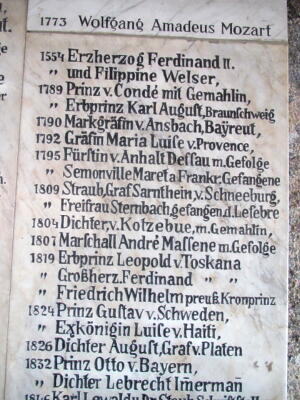 1773 Wolfgang Amadeus Mozart
1554 Erzherzog Ferdinand II.
" und Filippine Welser,
1789 Prinz v. Condé mit Gemahlin,
" Erbprinz Karl August, Braunschweig
1790 Markgräfin v. Ansbach, Bayreut,
1792 Gräfin Maria Luise v. Provence,
1795 Fürstin v. Anhalt Dessau m. Gefolge
" Semonville Maret a Frankr. Gefangene
1809 Straub, Graf Sarnthein, v. Schneeburg,
" Freifrau Sternbach, gefangen, d. Lefebre
1804 Dichter, v. Kotzebue, m. Gemahlin,
1807 Marschall André Massene m. Gefolge
1819 Erbprinz Leopold v. Toskana
" Großherz. Ferdinand " "
" Friedrich Wilhelm preuß. Kronprinz
1824 Prinz Gustav v. Schweden,
" Exkönigin Luise v. Haiti,
1826 Dichter August, Graf v. Platen
1832 Prinz Otto v. Bayern,
" Dichter Lebrecht Imermañ
Karl